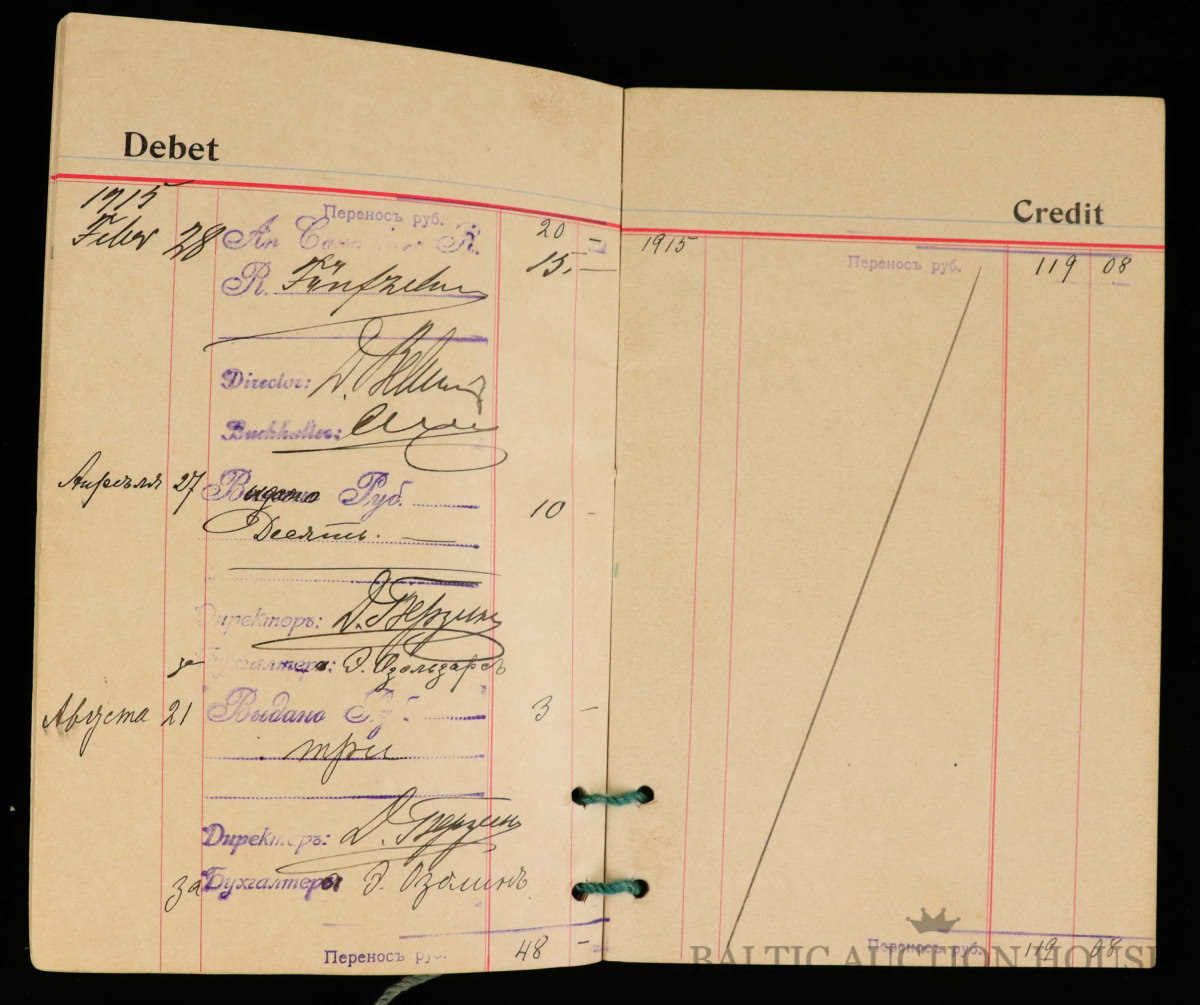 Debet
1915
Переносъ руб. 20 –
Febr 28 An R. 15. –
R. Fünfzehn
Director: D.
Buchhalter:
Апрѣля 27 Выдано Руб. 10 -
Десять. —
Директоръ: Д. Берзинъ
за Бухгалтера: Э.
Августа 21 Выдано Руб. 3 –
три
Директоръ: Д. Берзинъ
за Бухгалтера Э. Озолинъ
Переносъ руб. 48 –
Credit
1915
Переносъ руб. 119 08
Переносъ руб. 119 08
BALTIC AUCTION HOUSE